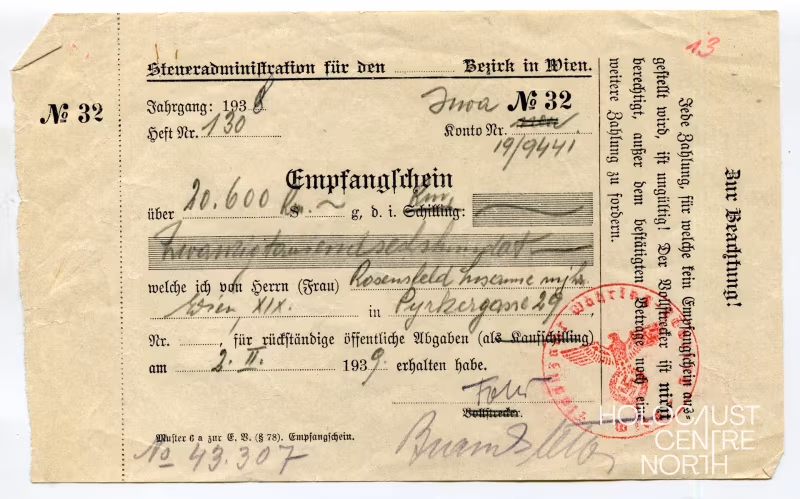 Steueradministration für den ........ Bezirk in Wien.
Nº 32
Jahrgang: 1938
Juva Nº 32
Heft Nr. 130
Konto Nr.
19/9441
Empfangschein
über 20.600 Rm. S — g, d. i. Schilling: Rm.
Zwanzigtausendsechshundert —
welche ich von Herrn (Frau) Rosensfeld Susanne
Wien, XIX. in Pyrkergasse 29,
Nr. ......, für rückständige öffentliche Abgaben (als Kaufschilling)
am 2. II. 1939 erhalten habe.
Vollstrecker.
Muster 6 a zur E. V. (§ 78). Empfangschein.
No 43.307
13
Zur Beachtung!
Jede Zahlung, für welche kein Empfangschein aus-
gestellt wird, ist ungültig! Der Vollstrecker ist nicht
berechtigt, außer dem bestätigten Betrage noch eine
weitere Zahlung zu fordern.
HOLOCAUST
CENTRE
NORTH